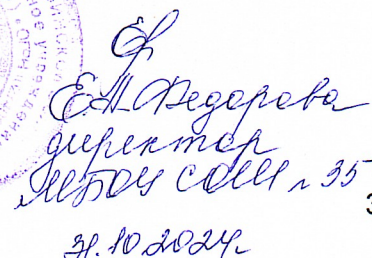 Е.А. Федорова
директор
МБОУ СОШ № 35
31.10.2024